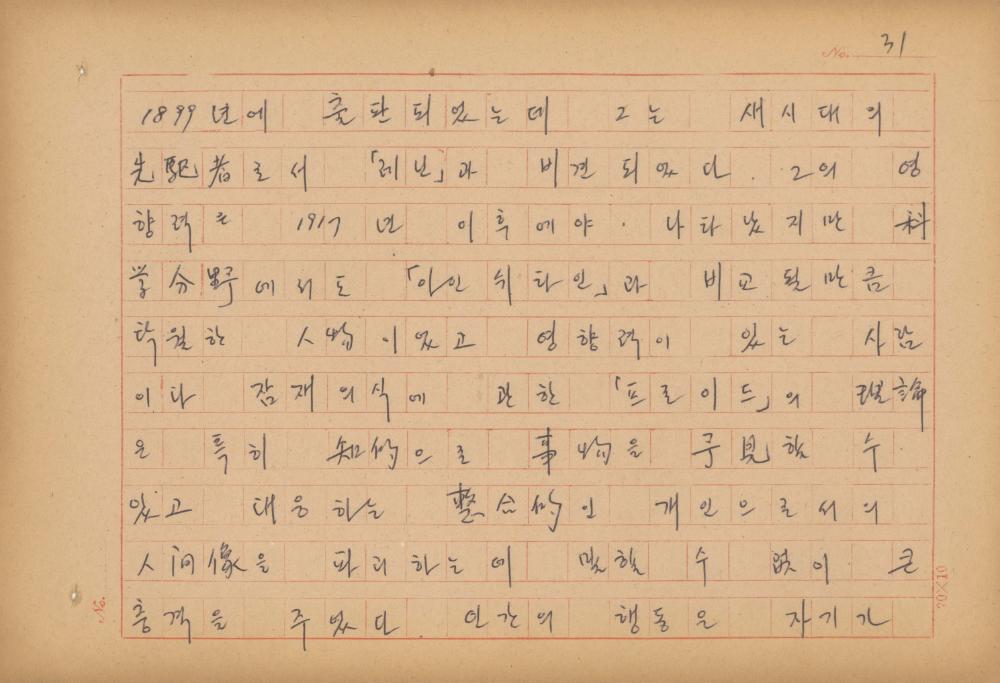 No. 31
1899년에 출판되었는데 그는 새시대의
先駆者로서 「레닌」과 비견되었다. 그의 영
향력은 1917년 이후에야 나타났지만 科
学分野에서도 「아인쉬타인」과 비교될만큼
탁월한 人物이었고 영향력이 있는 사람
이다 잠재의식에 관한 「프로이드」의 理論
은 특히 知的으로 事物을 予見할 수
있고 대응하는 整合的인 개인으로서의
人间像을 파괴하는데 말할 수 없이 큰
충격을 주었다. 인간의 행동은 자기가
No.
20×10